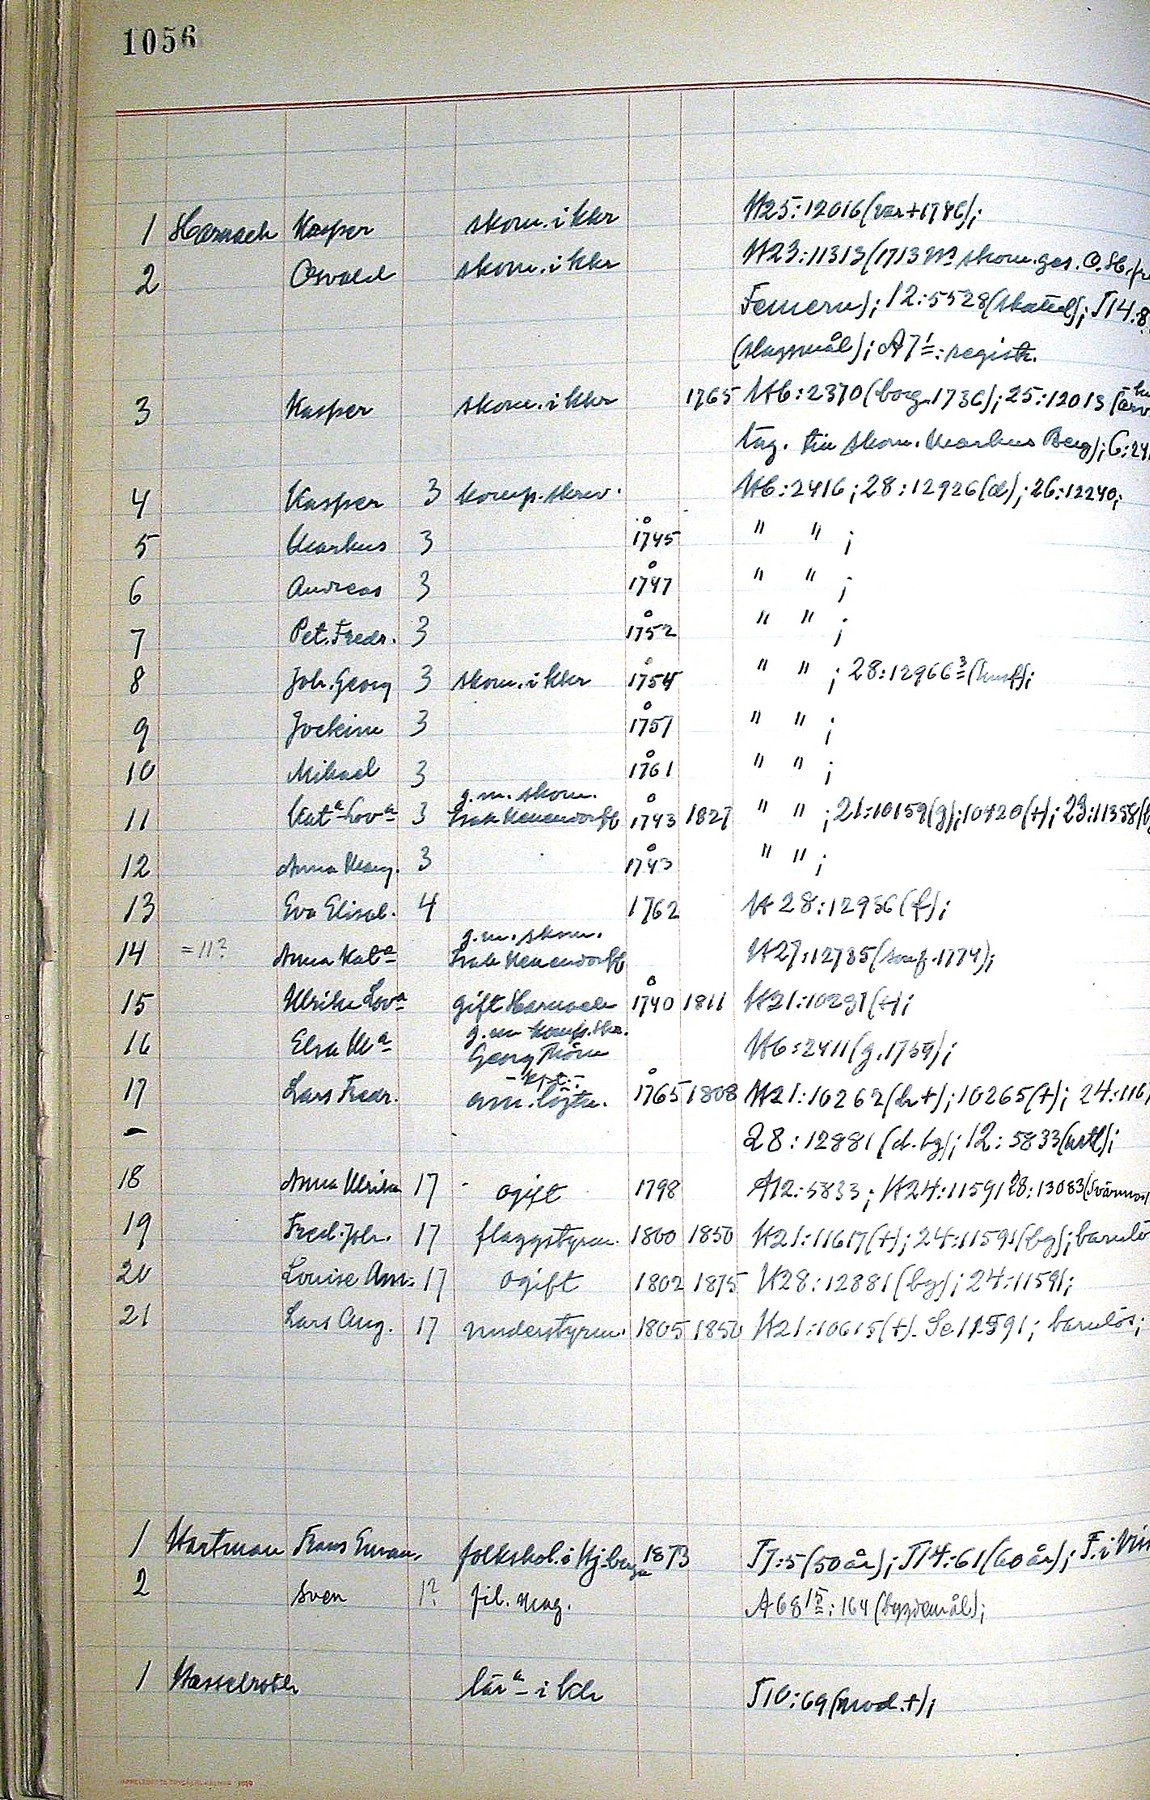 1056
1 Harnach Kasper skom. i kkr H25:12016 (var +1746);
2 Osvald skom. i kkr H23:11313 (1713 skom. ges. O. H. fr
Femern); 12:5528 (skatted); J14:8
(slagsmål); A7 1: registr.
3 Kasper skom. i kkr 1765 H6:2370 (borg. 1736); 25:12013
tag. till skom. Markus Berg); 6:24
4 Kasper 3 komp. skriv. H6:2416; 28:12926 (d); 26:12240;
5 Markus 3 1745 " " ;
6 Andreas 3 1747 " " ;
7 Pet. Fredr. 3 1752 " " ;
8 Joh. Georg 3 skom. i kkr 1754 " " ; 28:12966 3
9 Jockim 3 1757 " " ;
10 Mikael 3 1761 " " ;
g. m. skom.
11 Kat a Lov a 3 Neuendorff 1743 1827 " " ; 21:10159 (g); 10420 (+); 23:11358
12 Anna Marg. 3 1743 " " ;
13 Eva Elisab. 4 1762 H28:12936 (f);
g. m. skom.
14 =11? Anna Kat a Neuendorff H27:12735 (1774);
15 Ulrika Lov a gift Harnach 1740 1811 H21:10231 (+);
g. m. komp. skr.
16 Elsa M a Georg H6:2411 (g. 1759);
17 Lars Fredr. am. löjtn. 1765 1808 H21:10262 (+); 10265 (+); 24:116
– 28:12881 (d. bg); 12:5833
18 Anna Ulrika 17 ogift 1798 A12:5833; H24:11591 28:13083
19 Fred. Joh. 17 flaggstyrm. 1800 1850 H21:11617 (+); 24:11591 (bg); barnlö
20 Louise Am. 17 ogift 1802 1875 H28:12881 (bg); 24:11591;
21 Lars Aug. 17 understyrm. 1805 1850 H21:10615 (+) barnlös;
1 Hartman Frans Eman. folkskol. i 1873 J7:5 (50 år); J14:61 (60 år); F. i
2 Sven 1? fil. mag. A68 15: 164 (bygdemål);
1 Hasselroth lär a i kkr J10:69 (mod. +);